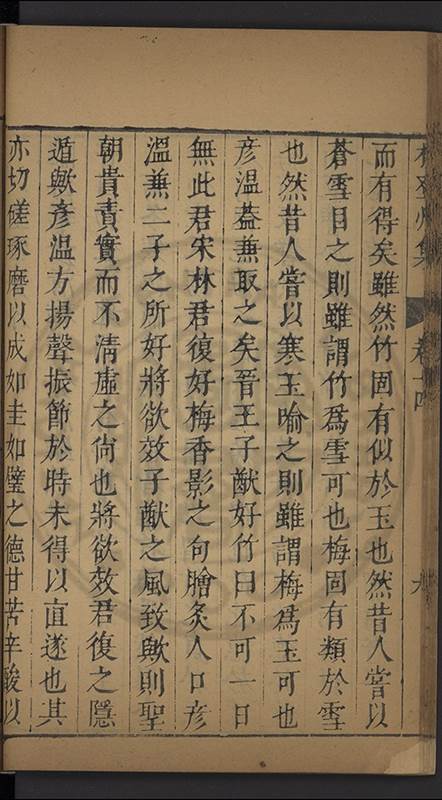 集 卷十四 九
而有得矣雖然竹固有似於玉也然昔人嘗以
蒼雪目之則雖謂竹爲雪可也梅固有類於雪
也然昔人嘗以寒玉喻之則雖謂梅爲玉可也
彦溫蓋兼取之矣晉王子猷好竹曰不可一日
無此君宋林君復好梅香影之句膾炙人口彦
溫兼二子之所好將欲效子猷之風致歟則聖
朝貴責實而不清虛之尚也將欲效君復之隱
遁歟彦溫方揚聲振節於時未得以直遂也其
亦切磋琢磨以成如圭如璧之德甘苦辛酸以